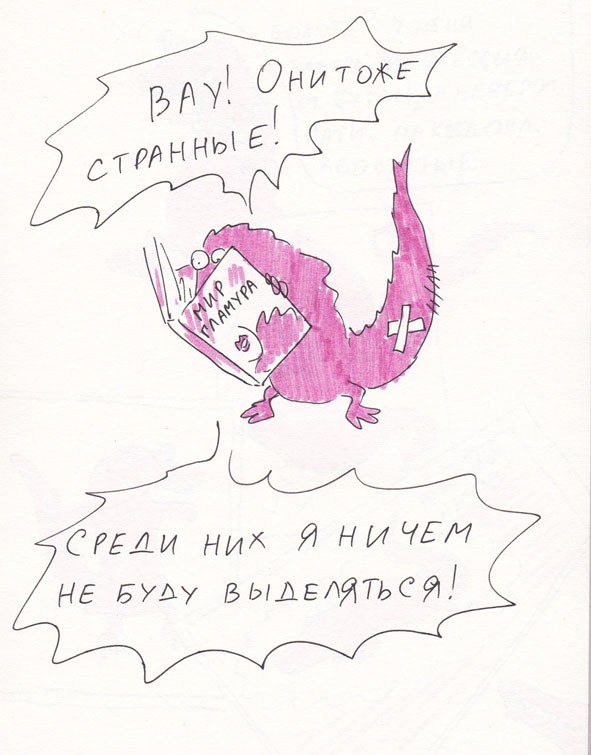 ВАУ! ОНИ ТОЖЕ
СТРАННЫЕ!
МИР
ГЛАМУРА
СРЕДИ НИХ Я НИЧЕМ
НЕ БУДУ ВЫДЕЛЯТЬСЯ!